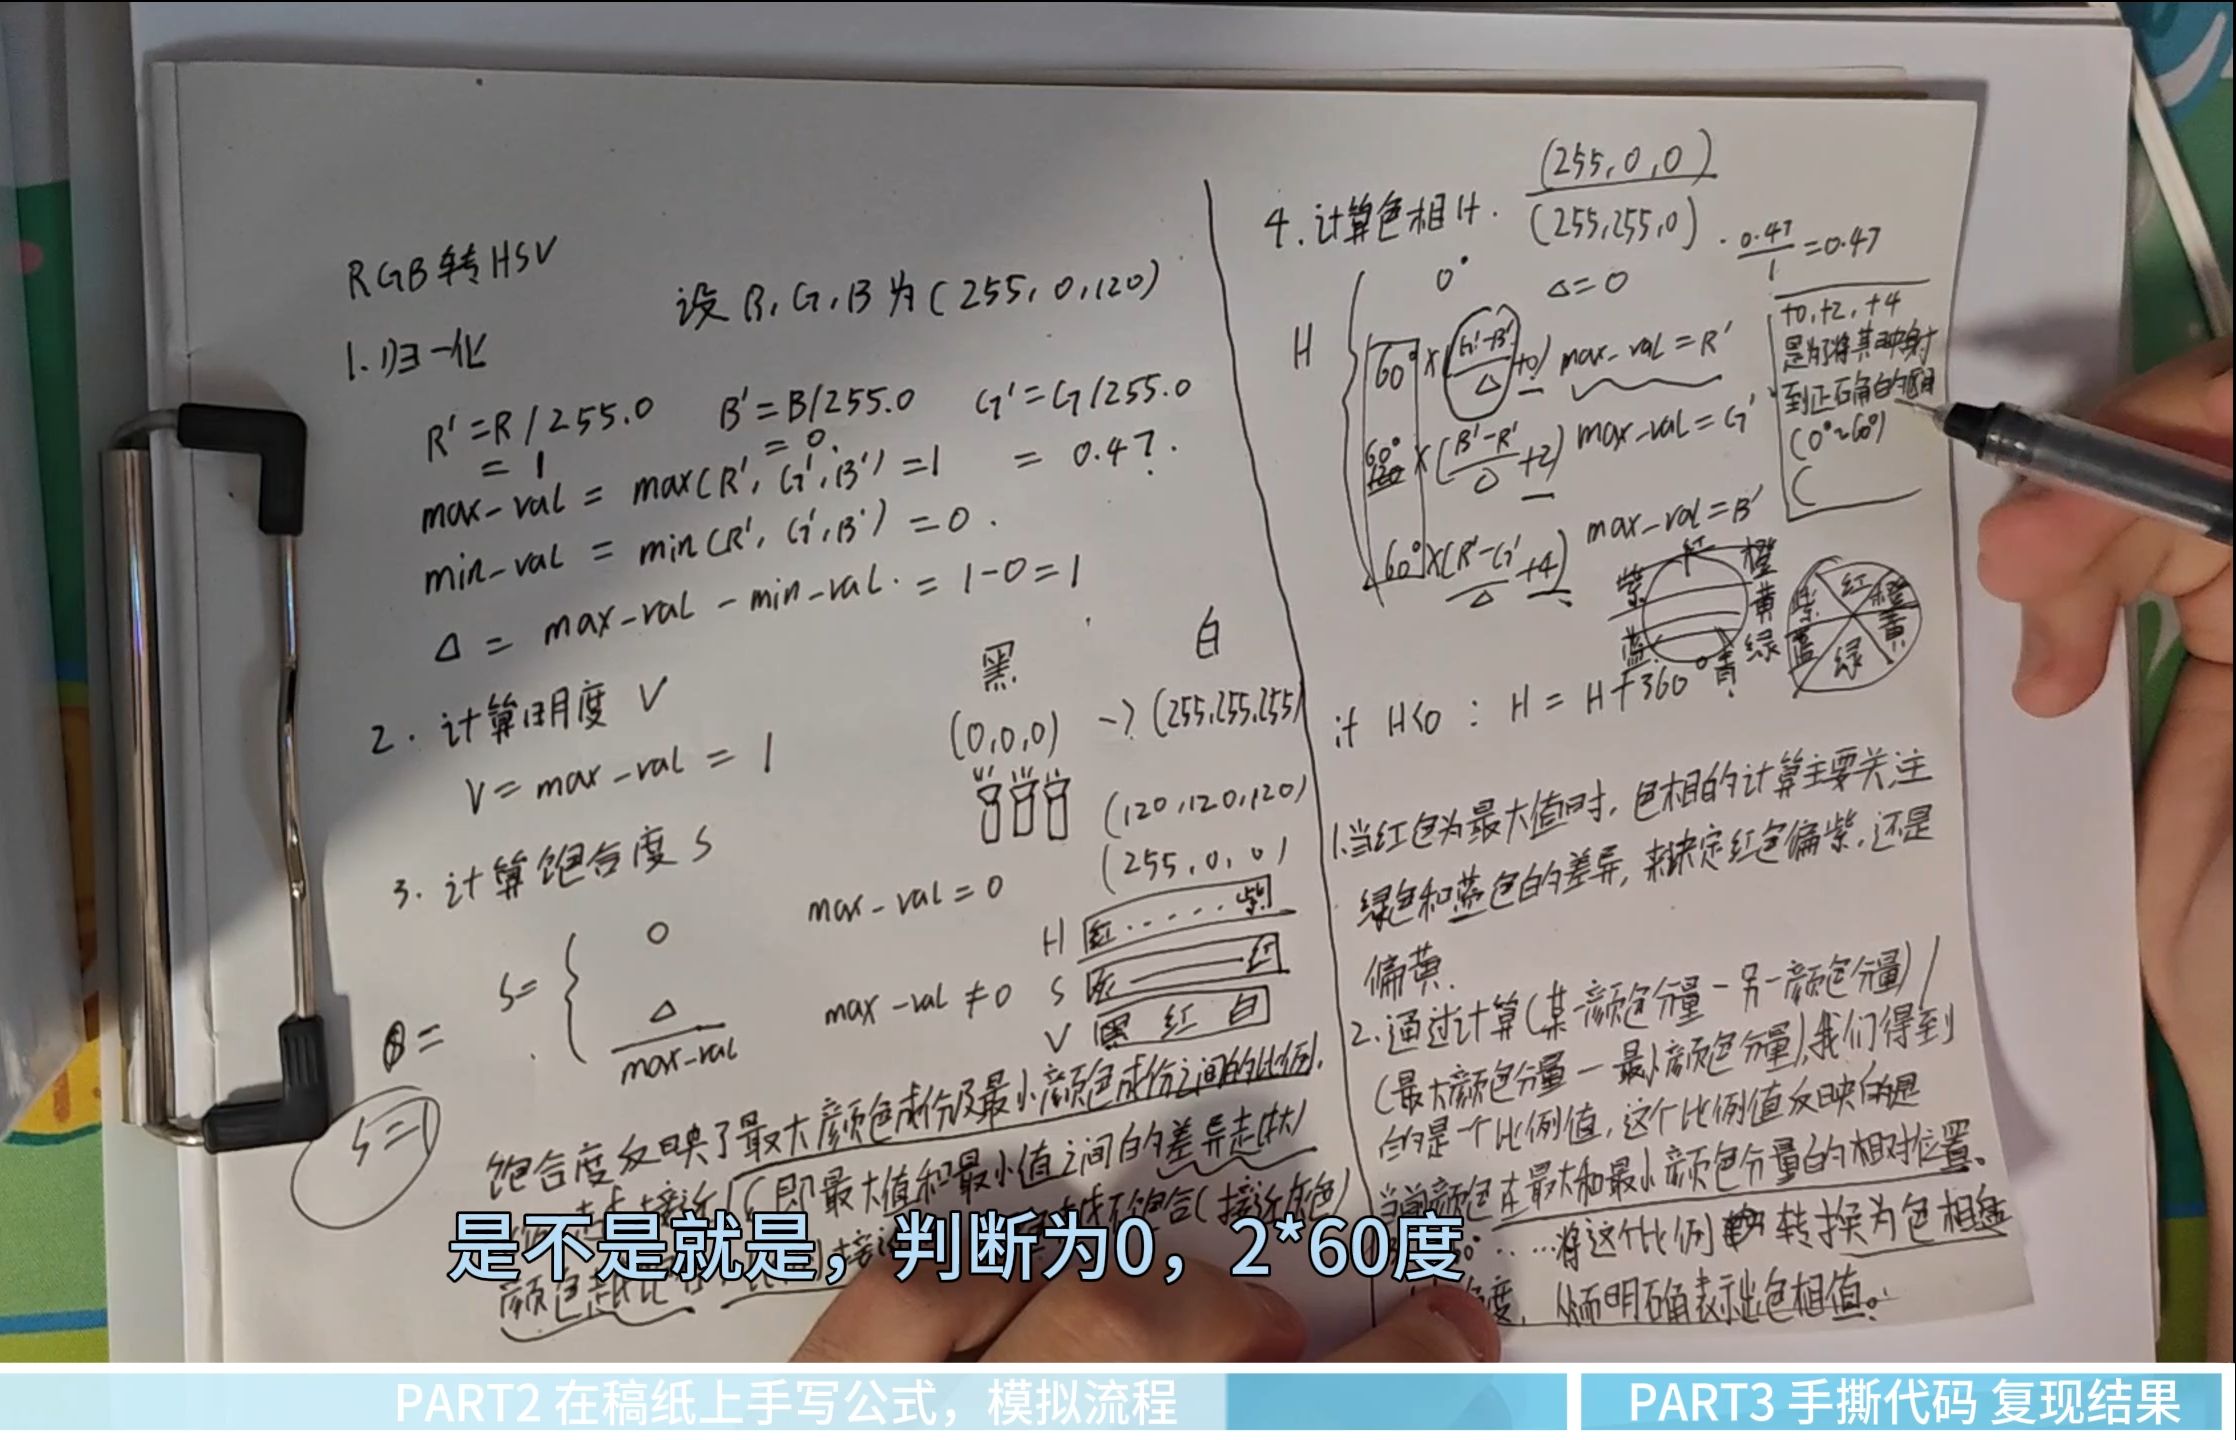 RGB转HSV
设 R,G,B为(255,0,120)
1.归一化
R'=R/255.0 B'=B/255.0 G'=G/255.0
=1 =0. =0.47.
max-val = max(R',G',B')=1
min-val = min(R',G',B')=0.
Δ = max-val - min-val. = 1-0=1
2. 计算明度 V
V= max-val = 1
黑 白
(0,0,0) -> (255,255,255)
(120,120,120)
(255,0,0)
3. 计算饱合度 S
S= 0 max-val=0
Δ/max-val max-val≠0
S=1
H 红......紫
S 灰 红
V 黑 红 白
饱合度反映了最大颜色成份及最小颜色成份之间的比例.
(即最大值和最小值之间的差异越大)
不饱合(接近灰色)
4.计算色相H. (255,0,0)
(255,255,0). 0.47/1=0.47
H 0° Δ=0
60°×(G'-B'/Δ+0) max-val=R'
60°×(B'-R'/Δ+2) max-val=G'
60°×(R'-G'/Δ+4) max-val=B'
+0,+2,+4
是为了将其映射
到正确的区间
(0°~60°)
(
红 橙 黄 绿 青 蓝 紫
红 橙 黄 绿 蓝 紫
if H<0 : H = H+360°
1.当红色为最大值时,色相的计算主要关注
绿色和蓝色的差异,来决定红色偏紫,还是
偏黄.
2.通过计算(某一颜色分量-另一颜色分量)/
(最大颜色分量-最小颜色分量),我们得到
的是一个比例值,这个比例值反映的是
当前颜色在最大和最小颜色分量的相对位置。
将这个比例转换为色相盘
度,从而明确表示出色相值。
是不是就是，判断为0，2*60度
PART2 在稿纸上手写公式，模拟流程
PART3 手撕代码 复现结果